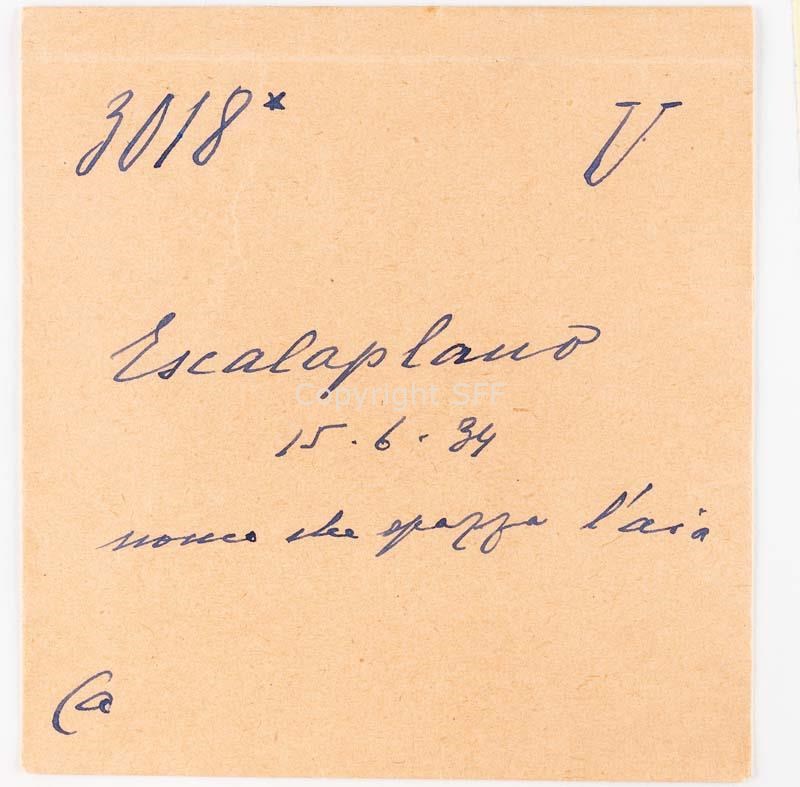 3018* V
Escalaplano
Copyright SFF
15.6.34
che spazza l'aia
Ca